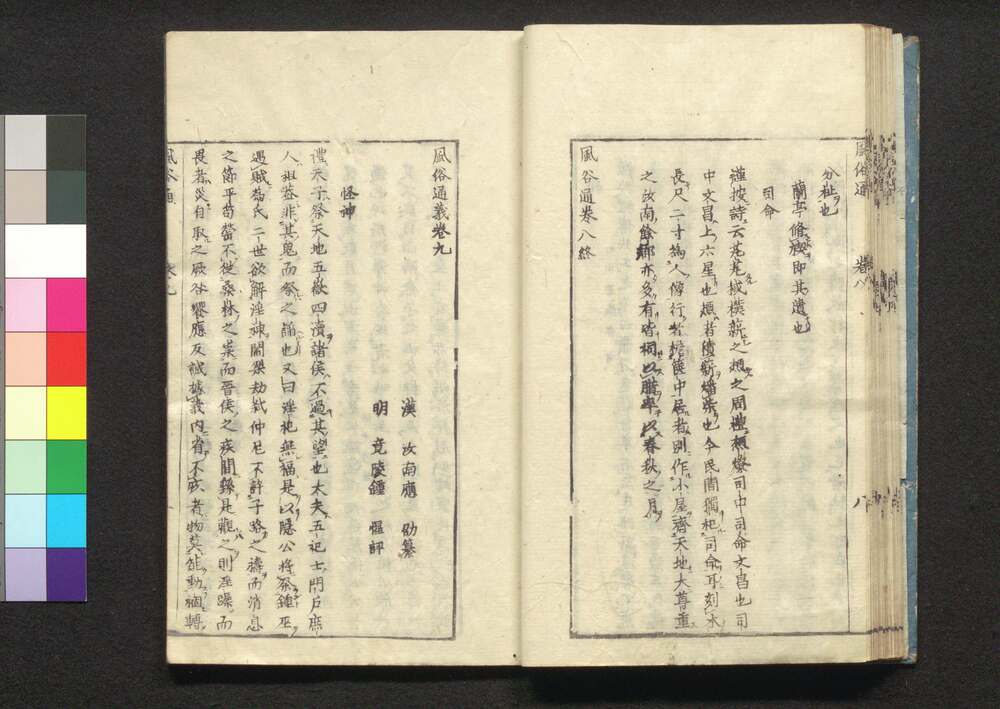 分祉也
蘭亭脩禊即其遺也
司命
謹按詩云芃芃棫樸薪之槱之周禮槱燎司中司命文昌也司
中文昌上六星也槱者積薪燔柴也今民間獨祀司命耳刻木
長尺二寸為人像行者檐篋中居者別作小屋齊天地大尊重
之汝南餘郡亦多有皆祠以腊率以春秋之月
風俗通卷八終
風俗通
卷八
八
風俗通義卷九
漢 汝南應 劭纂
明 竟陵鍾 惺評
怪神
禮天子祭天地五嶽四瀆諸侯不過其望也大夫五祀士門戶庶
人祖蓋非其鬼而祭之諂也又曰淫祀無福是以隱公將祭鍾巫
遇賊蒍氏二世欲解淫神閻樂劫弒仲尼不許子路之禱而消息
之節平荀罃不從桑林之祟而晉侯之疾間繇是觀之則淫躁而
畏者災自取之厥咎嚮應反誠據義內省不疚者物莫能動禍轉